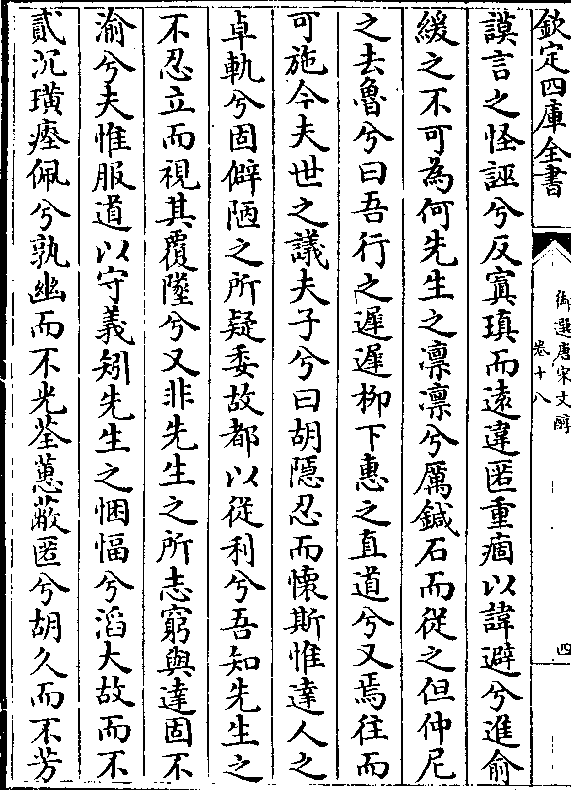 欽定四庫全書
御選唐宋文醇
卷十八
四
謨言之怪誣兮反寘瑱而遠違匿重痼以諱避兮進俞
緩之不可為何先生之凛凛兮厲鍼石而從之但仲尼
之去魯兮曰吾行之遲遲柳下惠之直道兮又焉往而
可施今夫世之議夫子兮曰胡隱忍而懷斯惟達人之
卓軌兮固僻陋之所疑委故都以從利兮吾知先生之
不忍立而視其覆墜兮又非先生之所志窮與達固不
渝兮夫惟服道以守義矧先生之悃愊兮滔大故而不
貳沉璜瘞佩兮孰幽而不光荃蕙蔽匿兮胡久而不芳